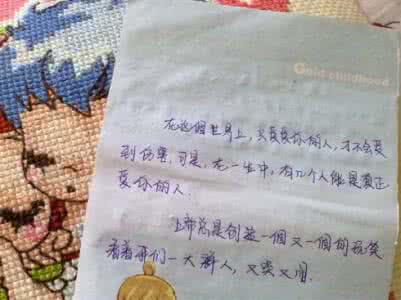 Gold childhood
在這個世界上，只爱爱你的人，才不会受
到伤害，可是，在一生中，有几个人能是真正
爱你的人.
上帝总是创造一個又一個的玩笑
看着我们一大群人，又哭又闹.